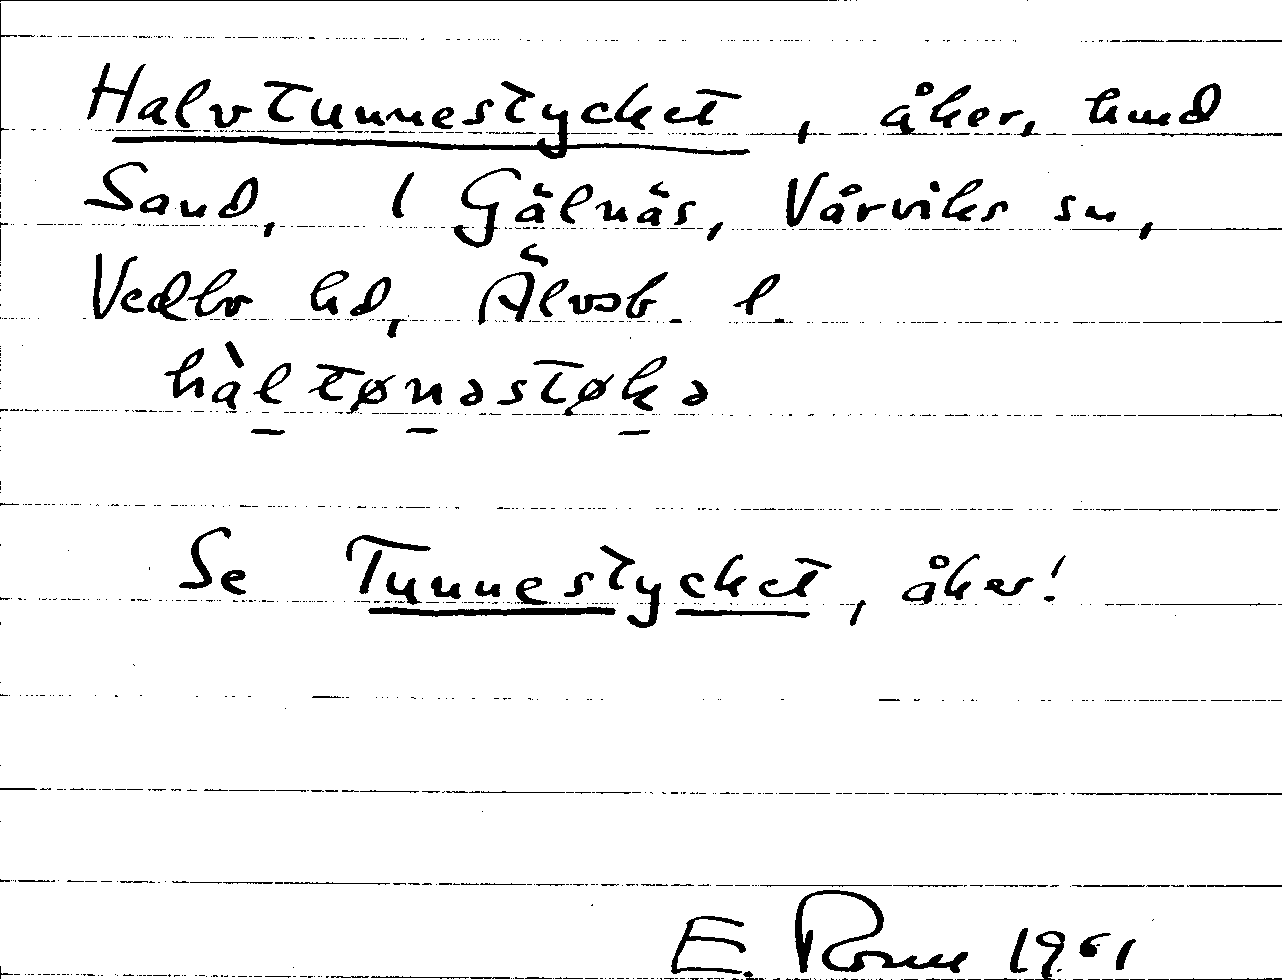 Halvtunnestycket, åker, hmd
Sand, 1 Gälnäs, Vårviks sn,
Vedbo hd, Älvsb. l.
hàltønəstøkə
Se Tunnestycket, åker!
E. 1961